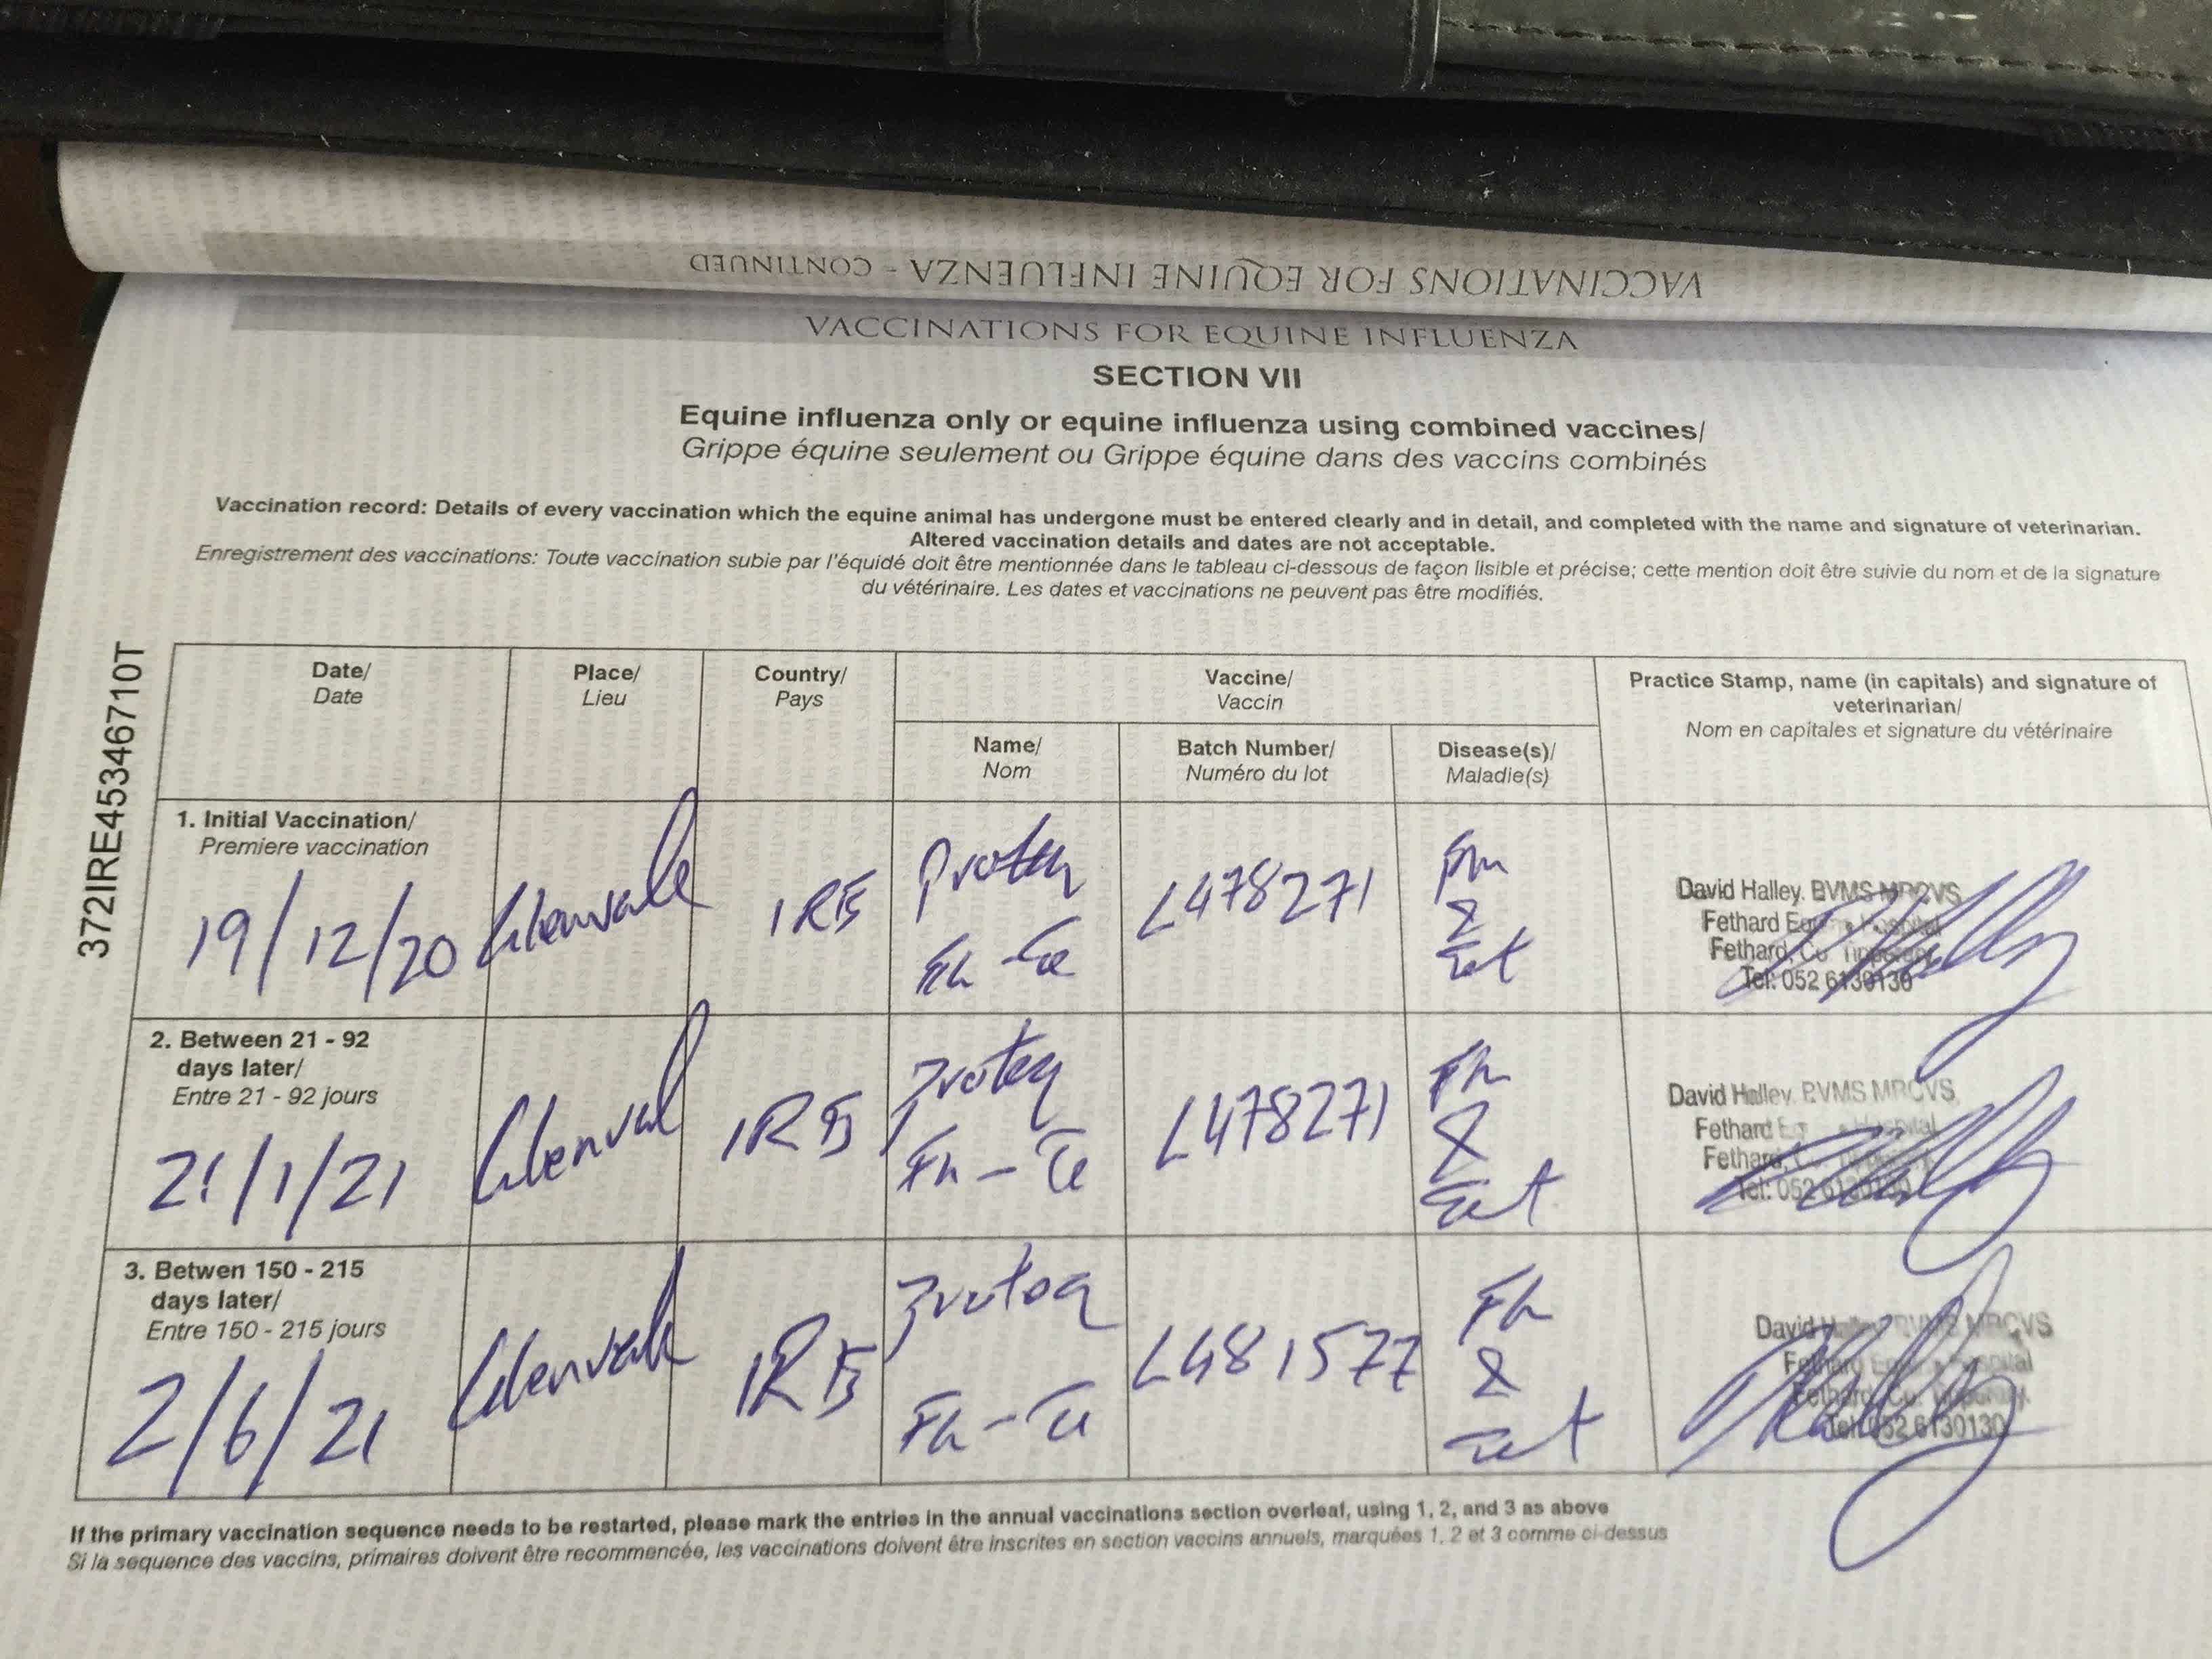 VACCINATIONS FOR EQUINE INFLUENZA - CONTINUED
VACCINATIONS FOR EQUINE INFLUENZA
SECTION VII
Equine influenza only or equine influenza using combined vaccines/
Grippe équine seulement ou Grippe équine dans des vaccins combinés
Vaccination record: Details of every vaccination which the equine animal has undergone must be entered clearly and in detail, and completed with the name and signature of veterinarian.
Altered vaccination details and dates are not acceptable.
Enregistrement des vaccinations: Toute vaccination subie par l'équidé doit être mentionnée dans le tableau ci-dessous de façon lisible et précise; cette mention doit être suivie du nom et de la signature
du vétérinaire. Les dates et vaccinations ne peuvent pas être modifiés.
372IRE45346710T
Date/
Date
Place/
Lieu
Country/
Pays
Vaccine/
Vaccin
Practice Stamp, name (in capitals) and signature of
veterinarian/
Nom en capitales et signature du vétérinaire
Name/
Nom
Batch Number/
Numéro du lot
Disease(s)/
Maladie(s)
1. Initial Vaccination/
Premiere vaccination
19/12/20
Glenvale
IRE
Proteq
L478271
&
Tet
David Halley. BVMS MRCVS
Fethard Equine Hospital
Fethard, Co Tipperary
Tel: 052 6130130
2. Between 21 - 92
days later/
Entre 21 - 92 jours
21/1/21
Glenval
IRE
Proteq
L478271
&
Tet
David Halley. BVMS MRCVS
Fethard Hospital
Fethard, Co.
Tel: 052 6130130
3. Betwen 150 - 215
days later/
Entre 150 - 215 jours
2/6/21
Glenvale
IRE
Proteq
L481577
&
Tet
David MRCVS
Hospital
Fethard, Co.
Tel: 052 6130130
If the primary vaccination sequence needs to be restarted, please mark the entries in the annual vaccinations section overleaf, using 1, 2, and 3 as above
Si la sequence des vaccins, primaires doivent être recommencée, les vaccinations doivent être inscrites en section vaccins annuels, marquées 1, 2 et 3 comme ci-dessus